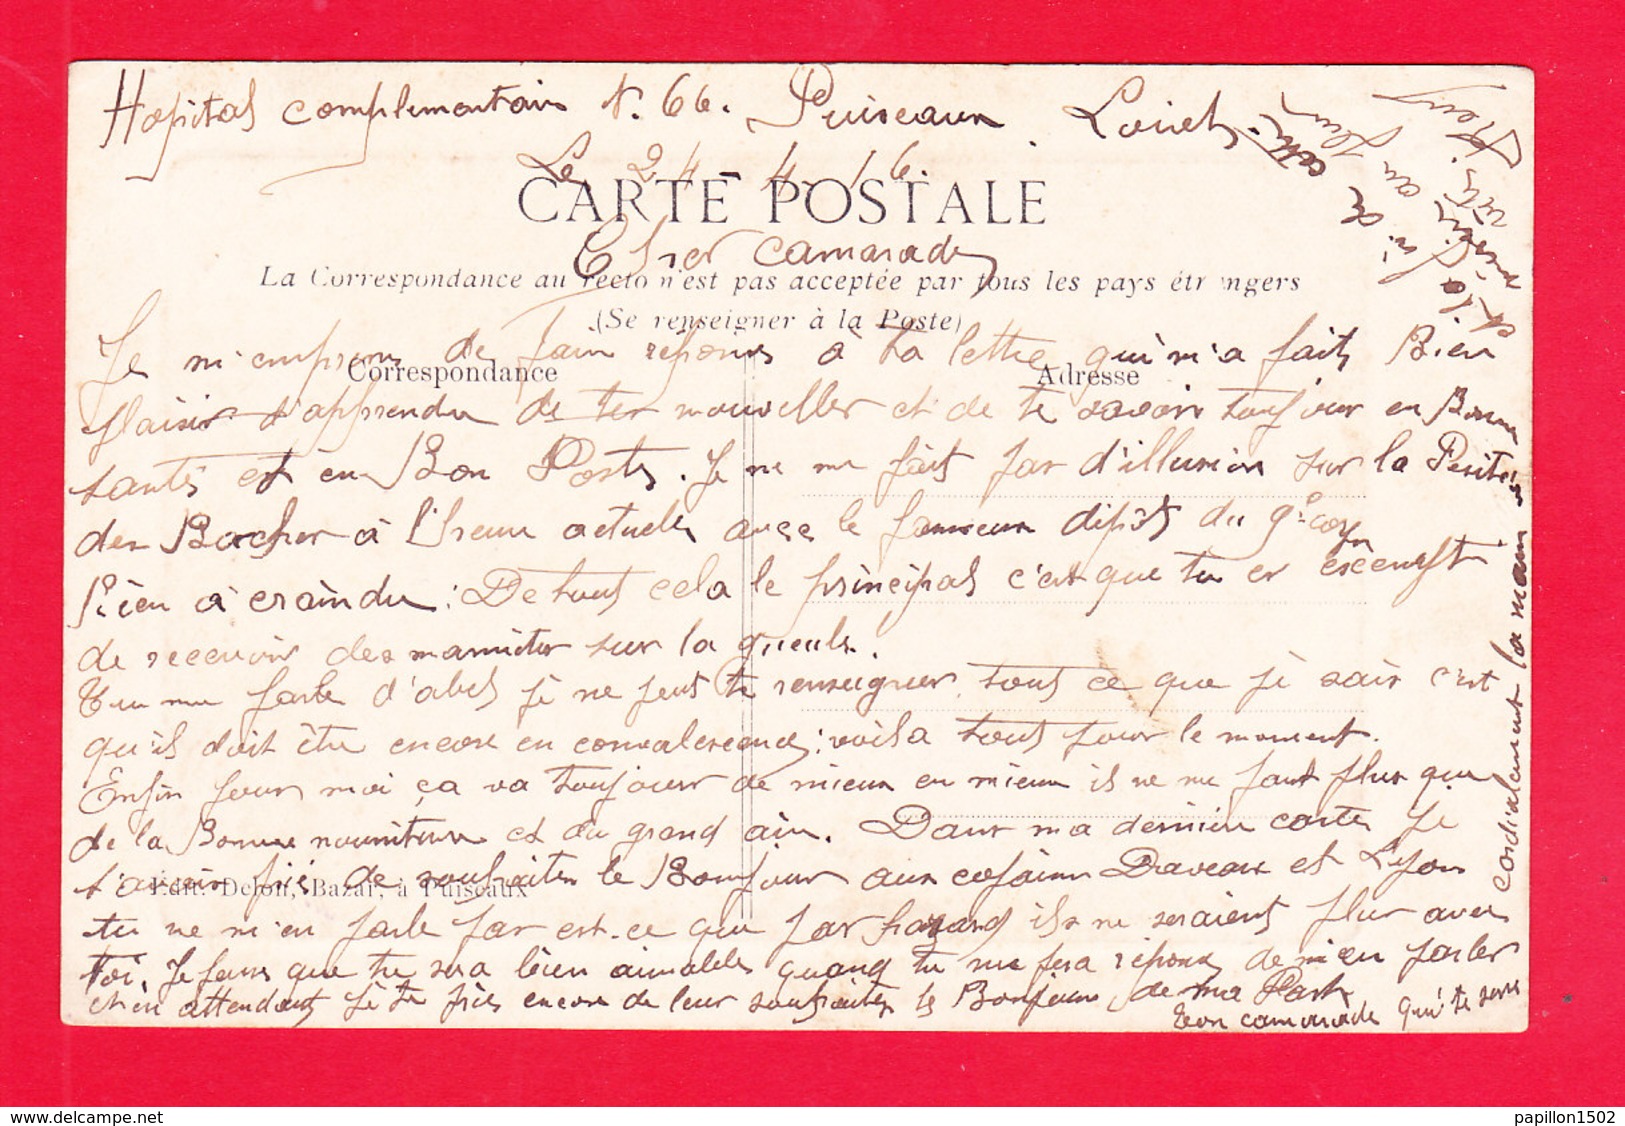 Hopital complementair N. 66. Puiseaux Loiret
Le 24-4-16.
CARTE POSTALE
Cher camarade
La Correspondance au recto n'est pas acceptée par tous les pays étrangers
(Se renseigner à la Poste)
Je m'empress de faire répons à ta lettre qui m'a fait Bien
Correspondance
Adresse
plaisir d'apprendre de tes nouvelles et de te savoir toujour en Bonne
santé et en Bon Poste. Je ne me fait pas d'illusion sur la
des Boches à l'heure actuelle avec le fameux dépot du
Rien à craindre : De tout cela le principal c'est que tu es
de recevoir des marmites sur la gueule.
Tu me parle d'abel je ne peut te renseigner tout ce que je sais c'est
qu'il doit être encore en convalescence; voila tout pour le moment.
Enfin pour moi ça va toujour de mieux en mieux il ne me faut plus que
de la Bonne nourriture et du grand air. Dans ma dernière carte je
t'avais prié de souhaiter le Bonjour aux copains Draveau et Lyon
Edit. Delon, Bazar, à Puiseaux
tu ne m'en parle par est-ce que par hazard ils ne seraient plus avec
toi. Je pense que tu sera bien aimable quand tu me fera répons de m'en parler
et en attendant je te prie encore de leur souhaiter le Bonjour de ma Part
Ton camarade qui te serre
cordialement la main
delcampe.net
papillon1502